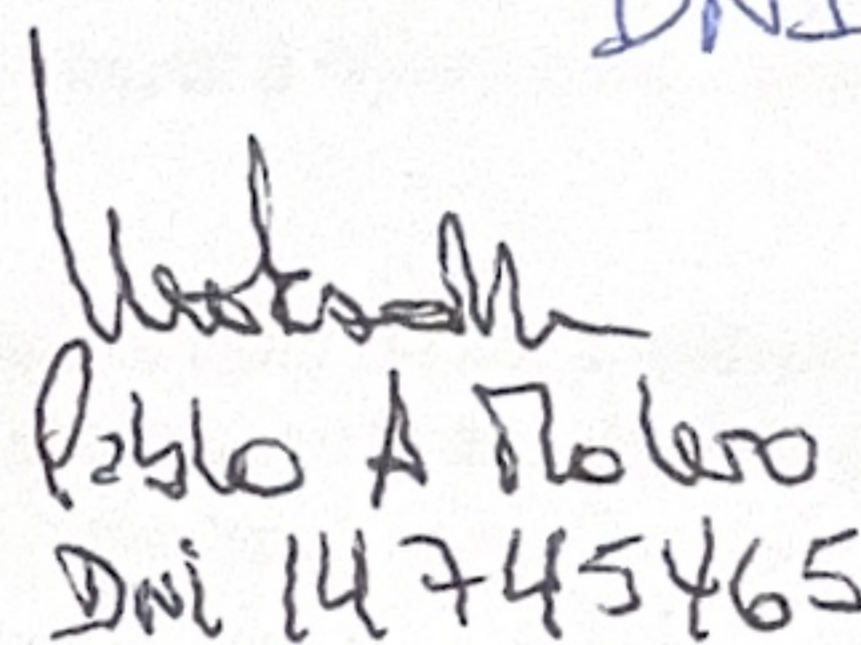 DNI
Pablo A Molero
DNi 14745465